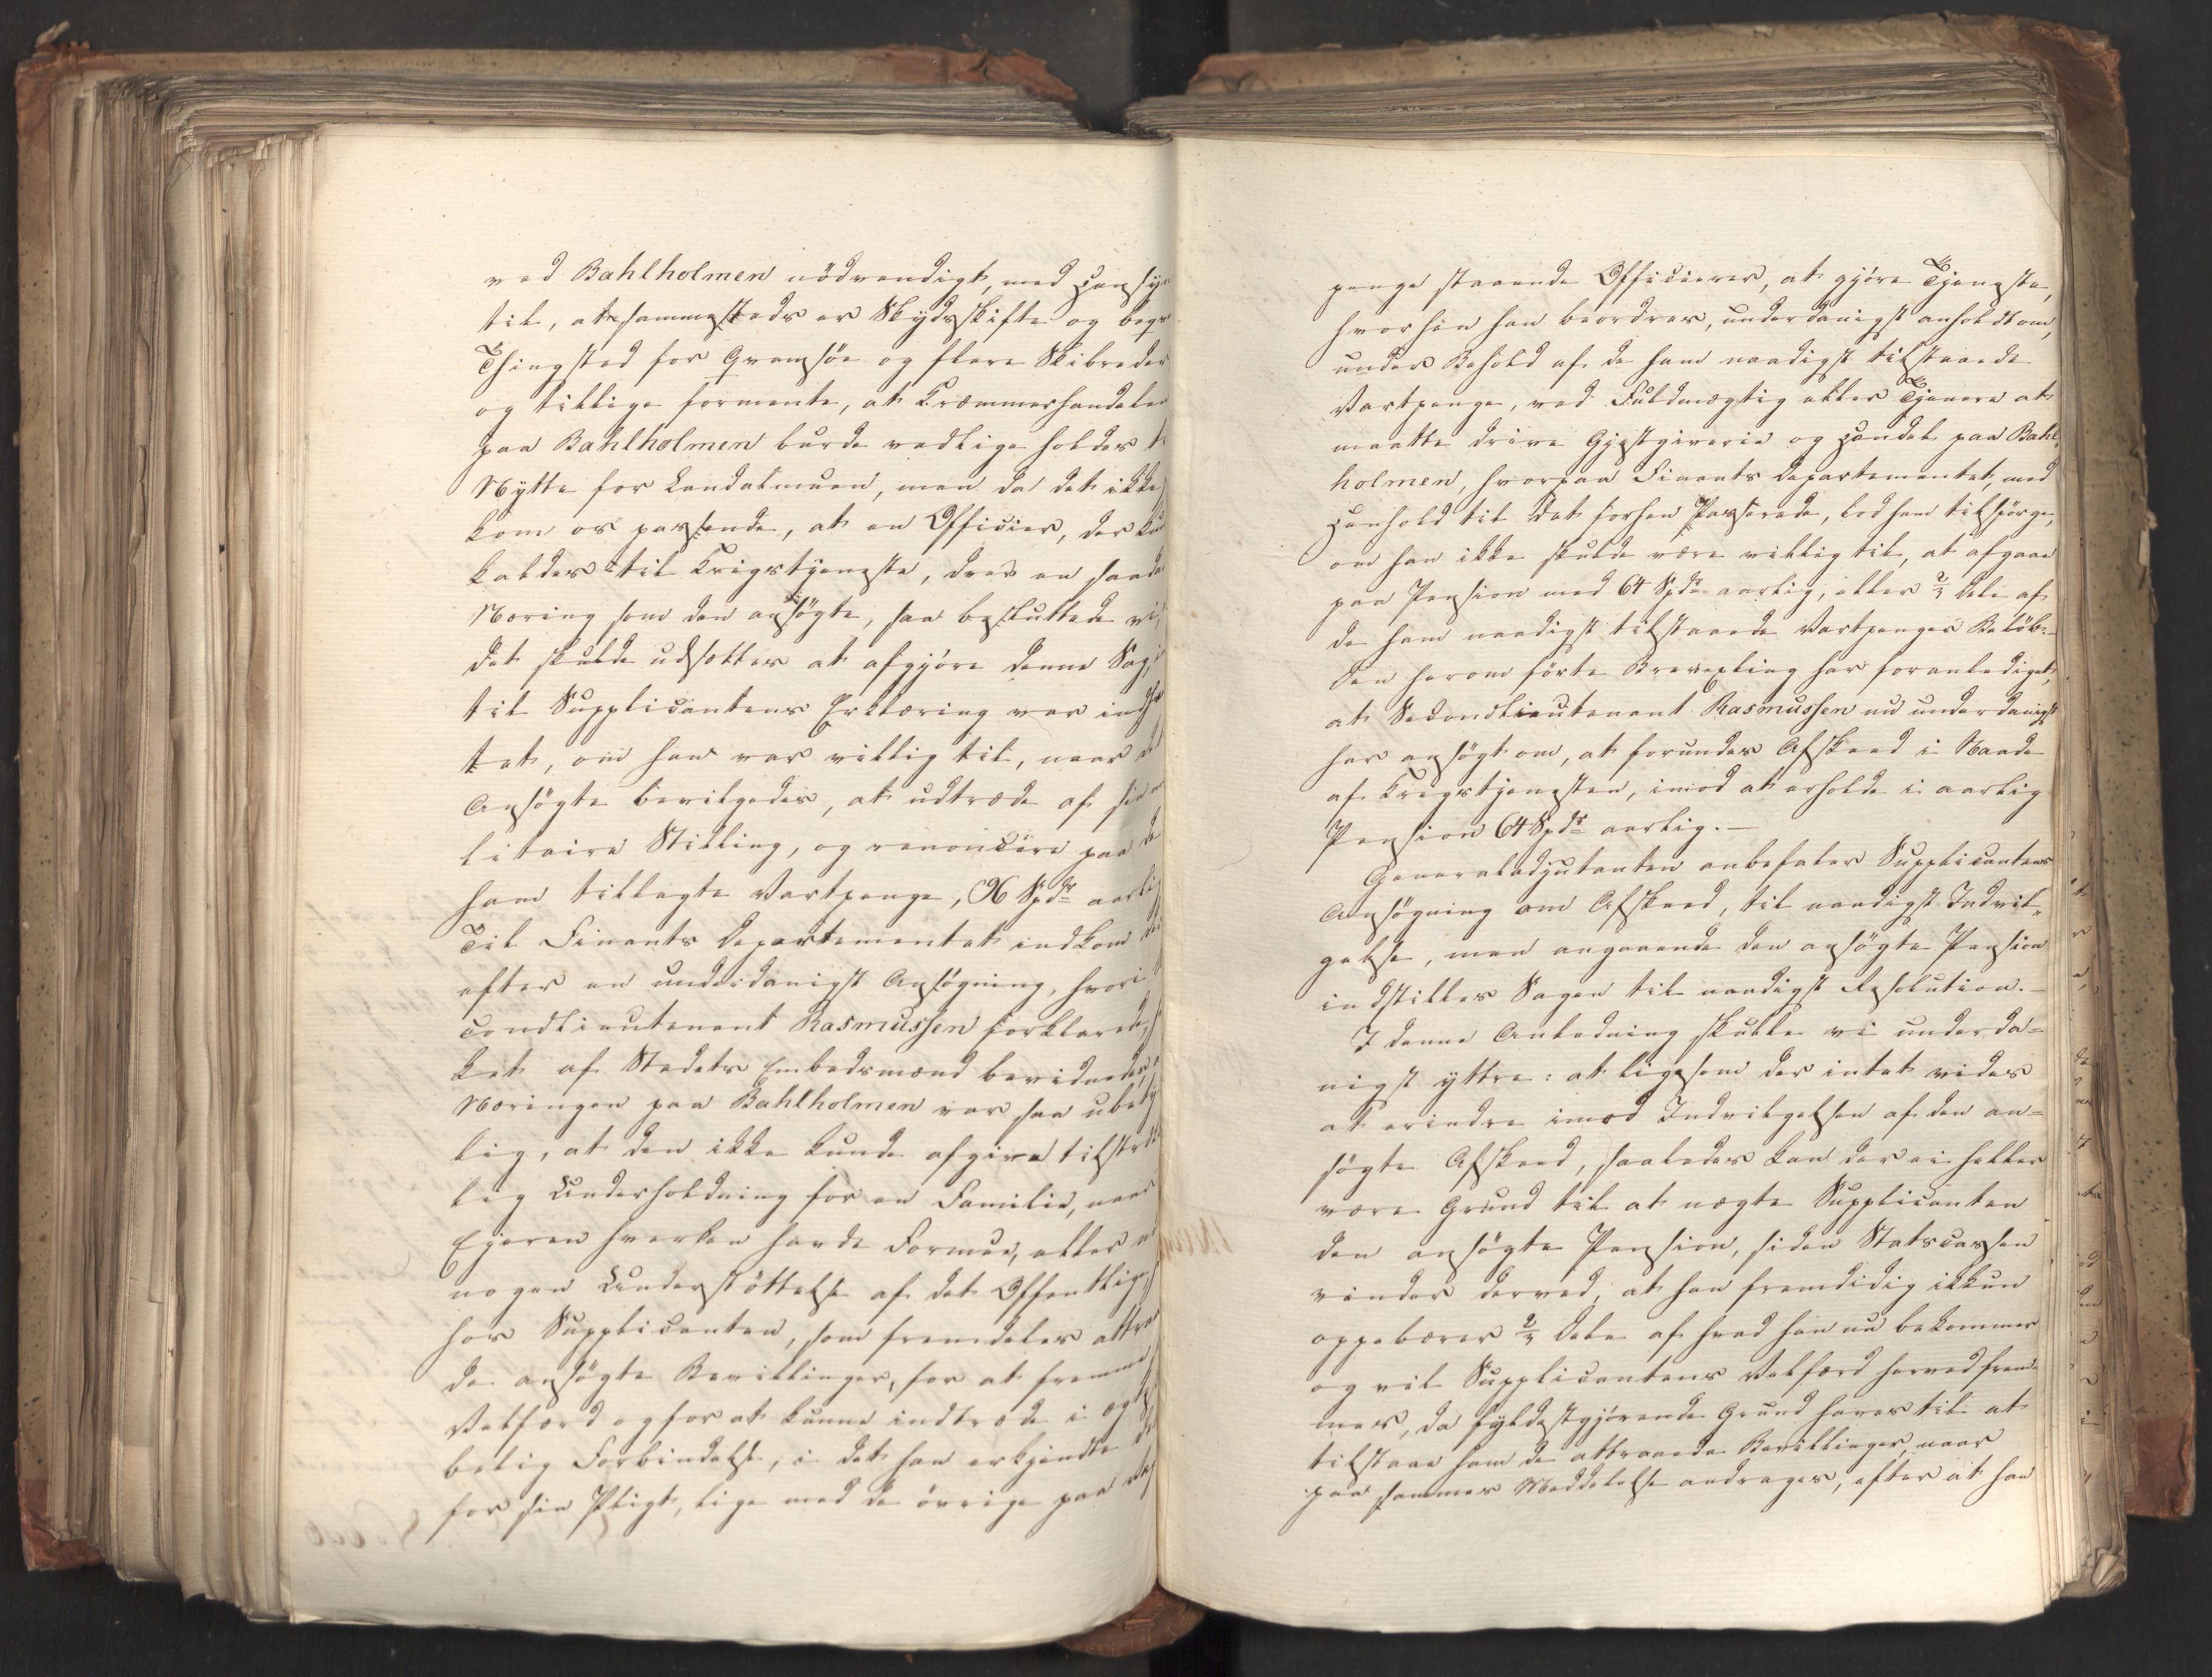 ved Bahlholmen nödvendigt, med Hensyn
til, at sammesteds er Skydsskifte og beqv
Thingsted for Qvamsöe og flere Skibreder
og tillige formente, at Kræmmerhandelen
paa Bahlholmen burde vedlige holdes t
Nytte for Landalmuen, men da det ikke
kom os passende, at en Officier, der kun
kaldes til Krigstjeneste, drev en saadan
Næring som den ansögte, saa besluttede vi,
det skulde udsættes at afgjöre denne Sag,
til Supplicantens Erklæring var indhen
tet, om han var villig til, naar det
Ansögte bevilgedes, at udtræde af sin m
litaire Stilling, og renoncere paa de
ham tillagte Vartpenge, 96 Spdr aarlig
Til Finants Departementet indkom der
efter en underdanigst Ansögning, hvori S
condlieutenant Rasmussen forklarede, h
ket af Stedets Embedsmænd bevidnedes, a
Næringen paa Bahlholmen var saa ubety
lig, at den ikke kunde afgive tilstræk
lig Underholdning for en Familie, naar
Ejeren hverken havde Formue, eller n
nogen Understöttelse af det Offentlige, h
hos Supplicanten, som fremdeles attra
de ansögte Bevillinger, for at fremme
Velfærd og for at kunne indtræde i ægte
belig Forbindelse, i det han erkjendte de
for sin Pligt, lige med de övrige paa Va
penge staaende Officierer, at gjöre Tjeneste,
hvorhen han beordres, underdanigst anholdt om,
under Behold af de ham naadigst tilstaaede
Vartpenge, ved Fuldmægtig eller Tjenere at
maatte drive Gjæstgiverie og Handel paa Bahl-
holmen, hvorpaa Finants Departementet, med
Henhold til det forhen Passerede, lod ham tilspörge,
om han ikke skulde være villig til, at afgaae
paa Pension med 64 Spdr aarlig, eller 2/3 Dele af
de ham naadigst tilstaaede Vartpenges Belöb.
Den herom förte Brevvexling har foranlediget,
at Secondlieutenant Rasmussen nu underdanigst
har ansögt om, at forundes Afskeed i Naade
af Krigstjenesten, imod at erholde i aarlig
Pension 64 Spdr aarlig.-
Generaladjutanten anbefaler Supplicantens
Ansögning om Afskeed, til naadigst Indvil-
gelse, men angaaende den ansögte Pension
indstilles Sagen til naadigst Resolution.-
I denne Anledning skulle vi underda-
nigst yttre: at ligesom der intet vides
at erindre imod Indvilgelsen af den an-
sögte Afskeed, saaledes kan der ei heller
være Grund til at nægte Supplicanten
den ansögte Pension, siden Statscassen
vinder derved, at han fremdidig ikkun
oppebærer 2/3 Dele af hvad han nu bekommer
og vil Supplicantens Velfærd herved frem-
mes, da fyldestgjörende Grund haves til at
tilstaae ham de attraaede Bevillinger, naar
paa sammes Meddelelse andrages, efter at han